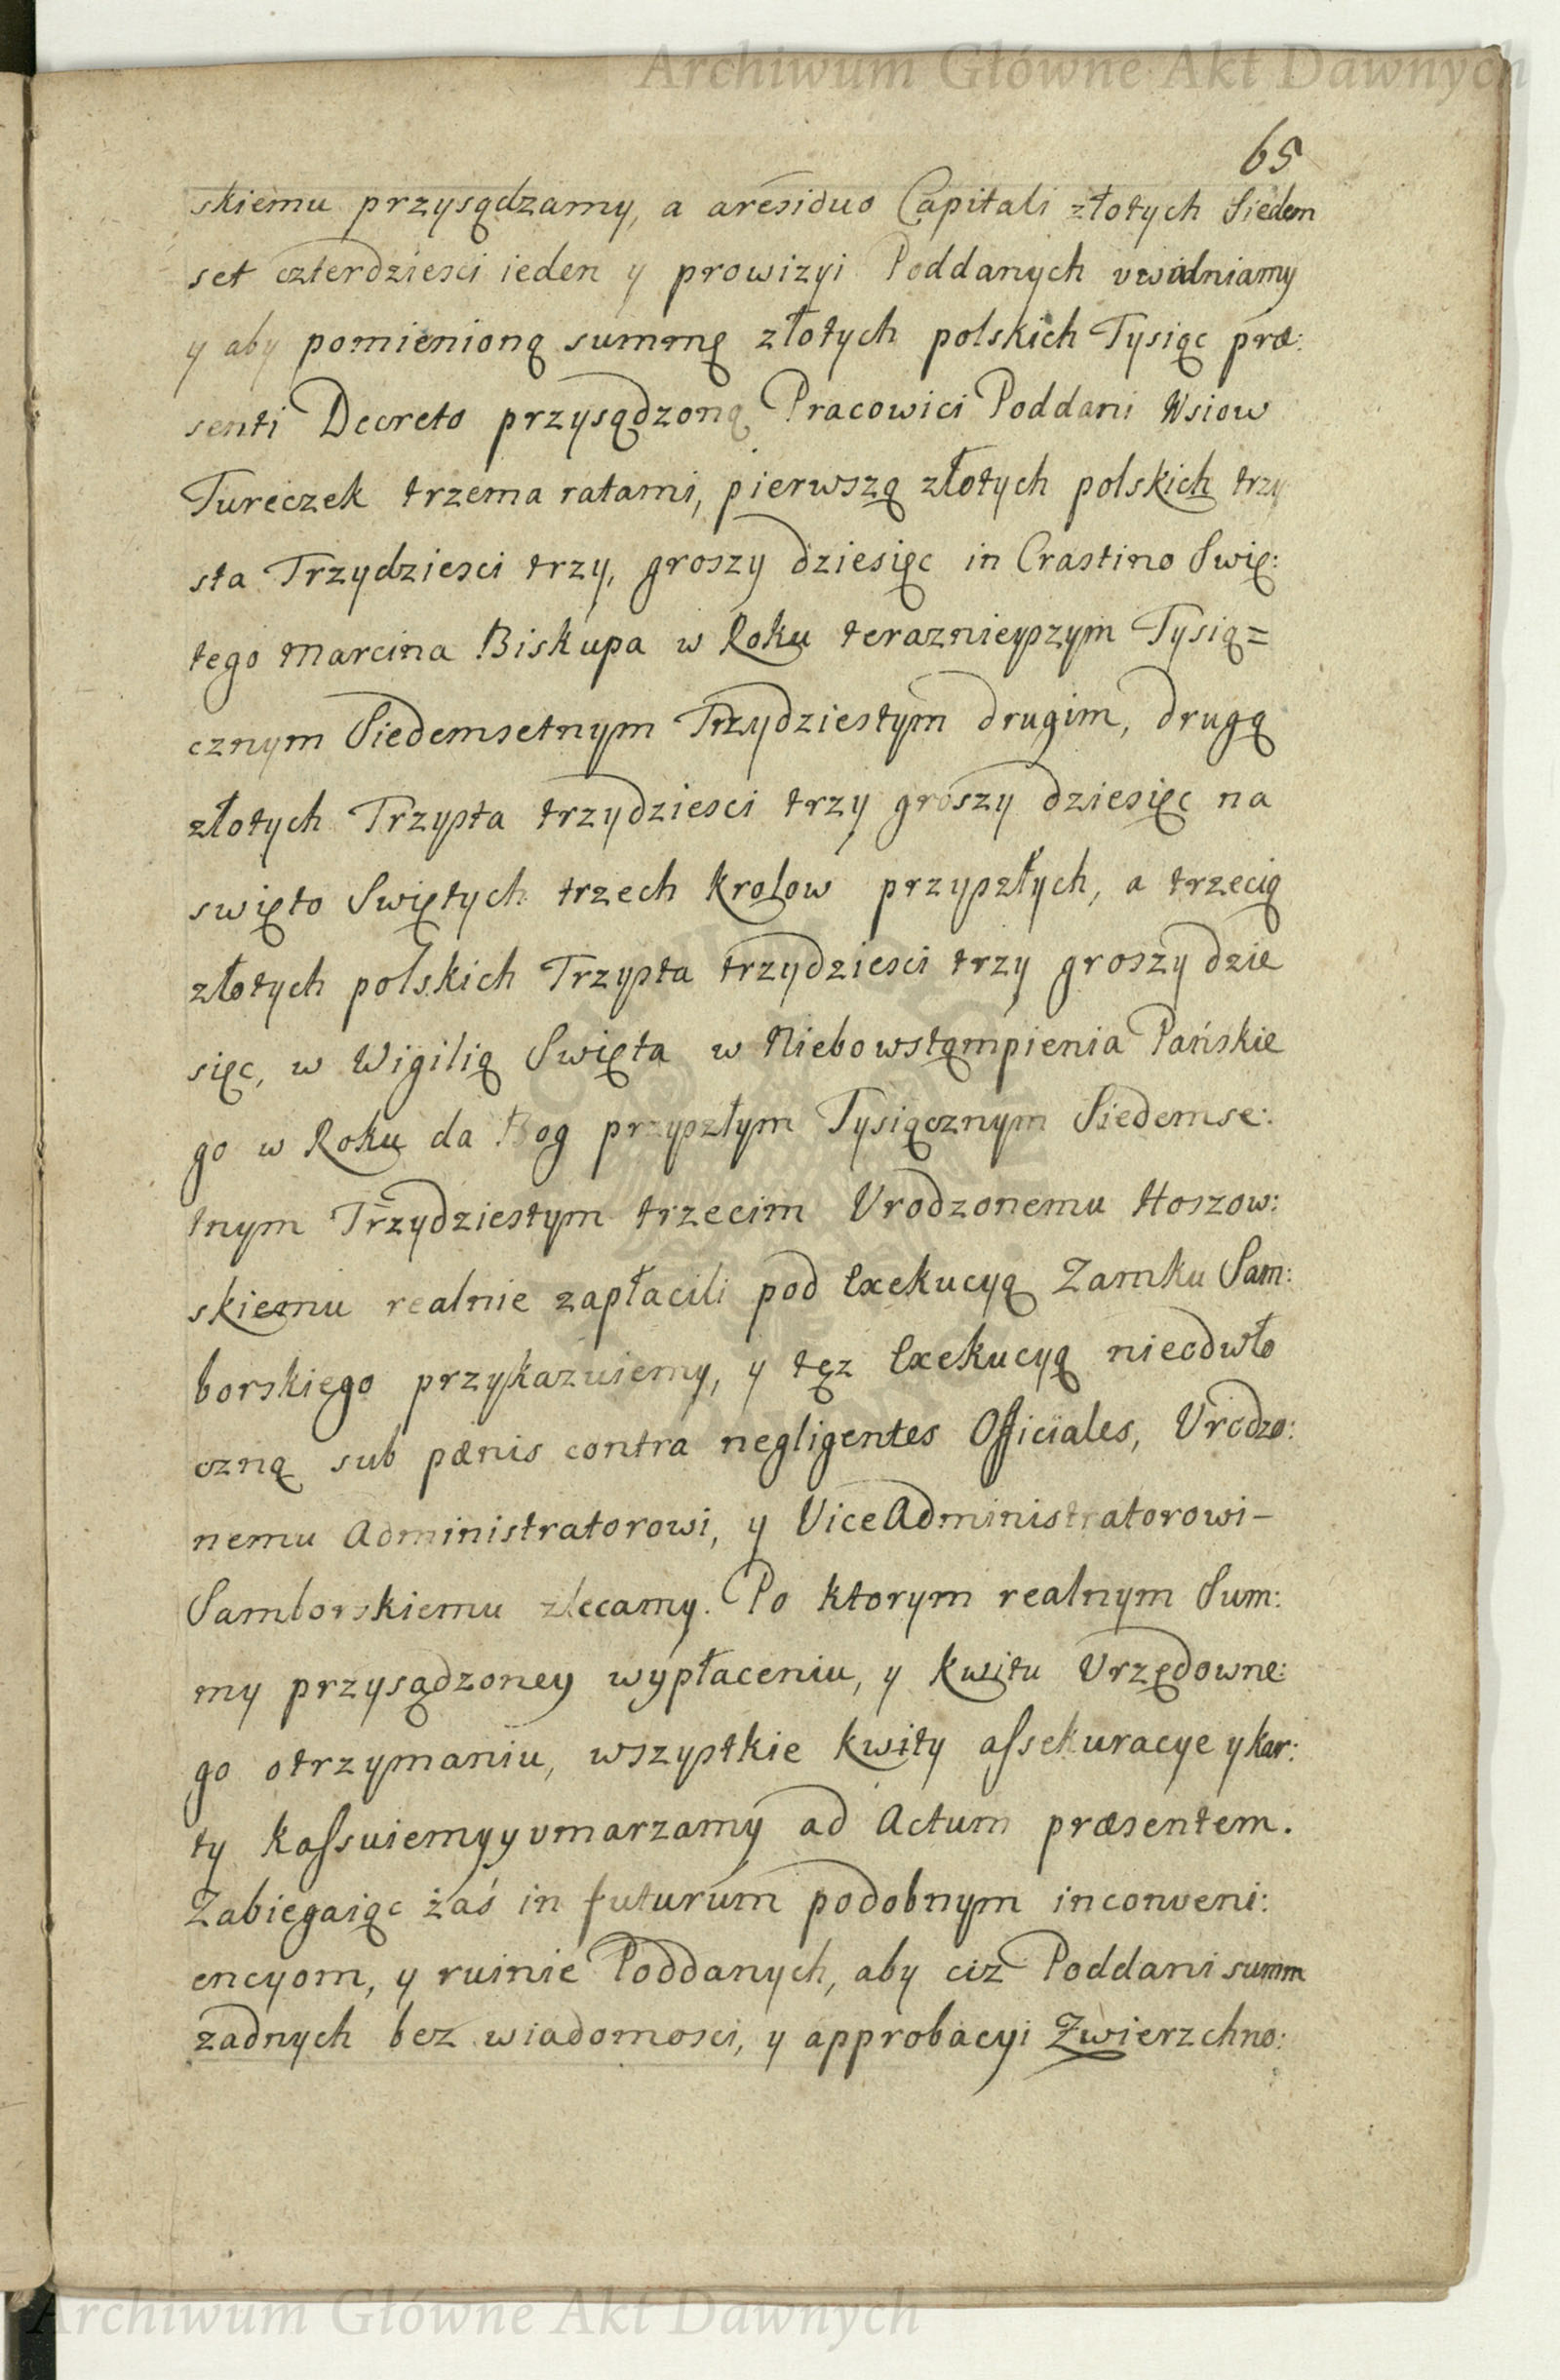 Archiwum Główne Akt Dawnych
65
skiemu przysądzamy, a aresiduo Capitali złotych Siedm
set czterdziesci ieden y prowizyi Poddanych vwalniamy
y aby pomienioną summę złotych polskich Tysiąc præ:
senti Decreto przysądzoną Pracowici Poddani Wsiow
Tureczek trzema ratami, pierwszą złotych polskich trzy
sta Trzydziesci trzy, groszy dziesięc in Crastino Swię:
tego Marcina Biskupa w Roku teraznieyszym Tysią=
cznym Siedemsetnym Trzydziestym drugim, drugą
złotych Trzysta trzydziesci trzy groszy dziesięc na
swięto Swiętych trzech Krolow przyszłych, a trzecią
złotych polskich Trzysta trzydziesci trzy groszy dzie
sięc, w Wigilią Swięta w Niebowstąmpienia Pańskie
go w Roku da Bog przyszłym Tysiącznym Siedemse:
tnym Trzydziestym trzecim Vrodzonemu Hoszow:
skiemu realnie zapłacili pod Exekucyą Zamku Sam:
borskiego przykazuiemy, y tęz Exekucyą nieodwło
czną sub pænis contra negligentes Officiales, Vrodzo:
nemu Administratorowi, y ViceAdministratorowi-
Samborskiemu zlecamy. Po ktorym realnym Sum:
my przysądzoney wypłaceniu, y kwitu Vrzędowne:
go otrzymaniu, wszystkie kwity assekuracye y kar:
ty kassuiemy y vmarzamy ad Actum præsentem.
Zabiegaiąc żaś in futurum podobnym inconveni:
encyom, y ruinie Poddanych, aby ciz Poddani summ
zadnych bez wiadomosci, y approbacyi Zwierzchno:
Archiwum Główne Akt Dawnych